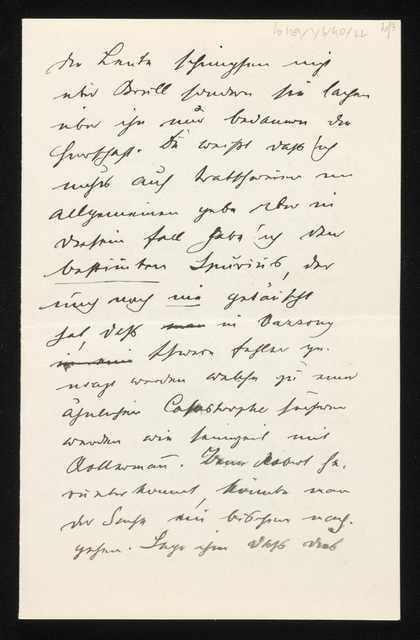 die Leute schimpfen nicht
über Brüll sondern sie lachen
über ihn und bedauern die
Herrschaft. Du weißt dass ich
nichts auf Tratschereien im
allgemeinen gebe aber in
diesem Fall habe ich den
bestimmten Spürius, der
mich noch nie getäuscht
hat, dass man in Varsony
in ein schwere Fehler ge-
macht werden welche zu einer
ähnlichen Catastrophe führen
werden wie seinerzeit mit
Kollerman. Wenn Robert he-
runter kommt, könnte man
der Sache ein bischen nach-
gehen. Sage ihm dass dies